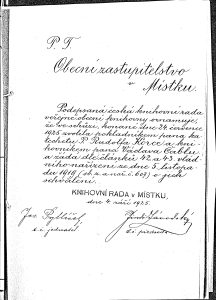 P. T.
Obecní zastupitelstvo
v Místku.
Podepsaná česká knihovní rada
veřejné obecní knihovny oznamuje,
že ve schůzi, konané dne 24. července
1925 zvolila pokladníkem pana ka-
techetu P. Rudolfa Korce a kni-
hovníkem pana Václava Cablu
a žádá dle článků 42. a 43. vlád-
ního nařízení ze dne 5. listopa-
du 1919 (sb. z. a nař. č. 607) o jich
schválení.
KNIHOVNÍ RADA v MÍSTKU,
dne 4. září 1925.
Jar.
t. č. jednatel.
t. č. předseda.